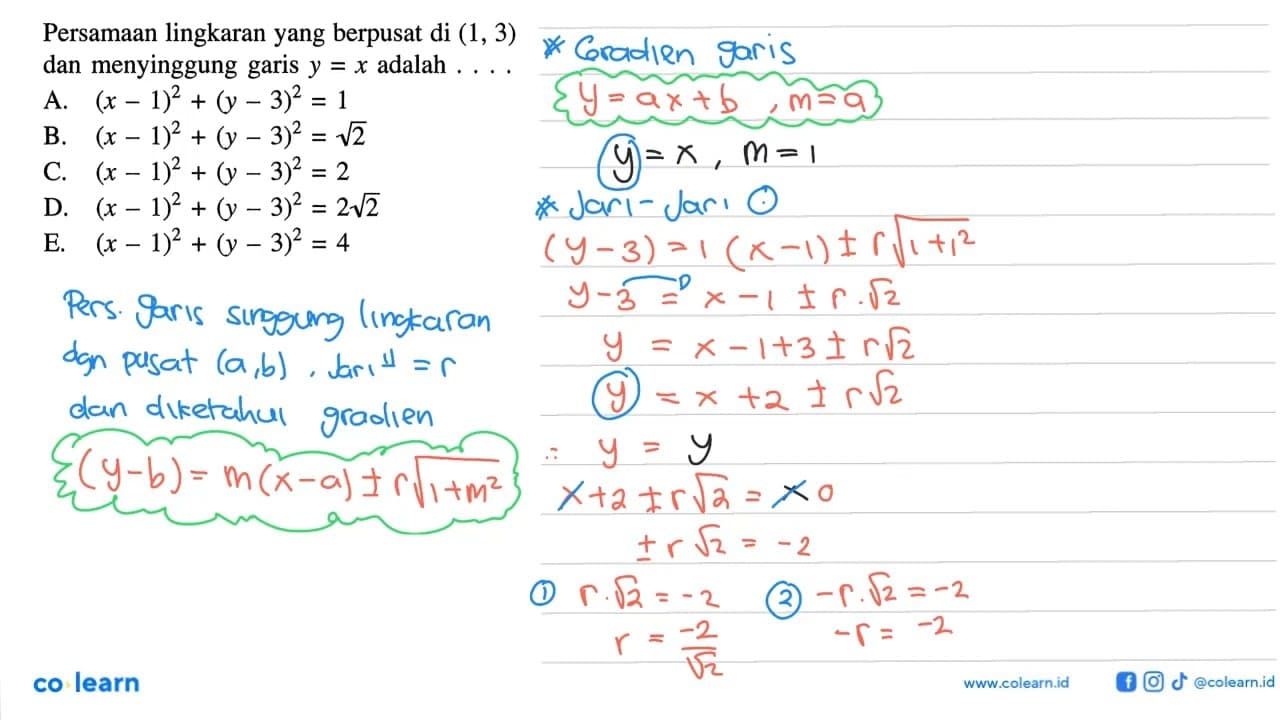 Persamaan lingkaran yang berpusat di (1, 3)
dan menyinggung garis y = x adalah . . . .
A. (x – 1)² + (y – 3)² = 1
B. (x – 1)² + (y – 3)² = √2
C. (x – 1)² + (y – 3)² = 2
D. (x – 1)² + (y – 3)² = 2√2
E. (x – 1)² + (y – 3)² = 4
Pers. garis singgung lingkaran
dgn pusat (a,b), Jari" = r
dan diketahui gradien
(y-b) = m(x-a) ± r√1+m²
* Gradien garis
y = ax + b , m = a
y = x , m = 1
* Jari-Jari ⊙
(y-3) = 1 (x-1) ± r√1+1²
y-3 = x-1 ± r.√2
y = x-1+3 ± r√2
y = x +2 ± r√2
∴ y = y
x+2 ± r√2 = x 0
± r√2 = -2
① r.√2 = -2 ② -r.√2 = -2
r = -2/√2 -r = -2
co learn
www.colearn.id @colearn.id